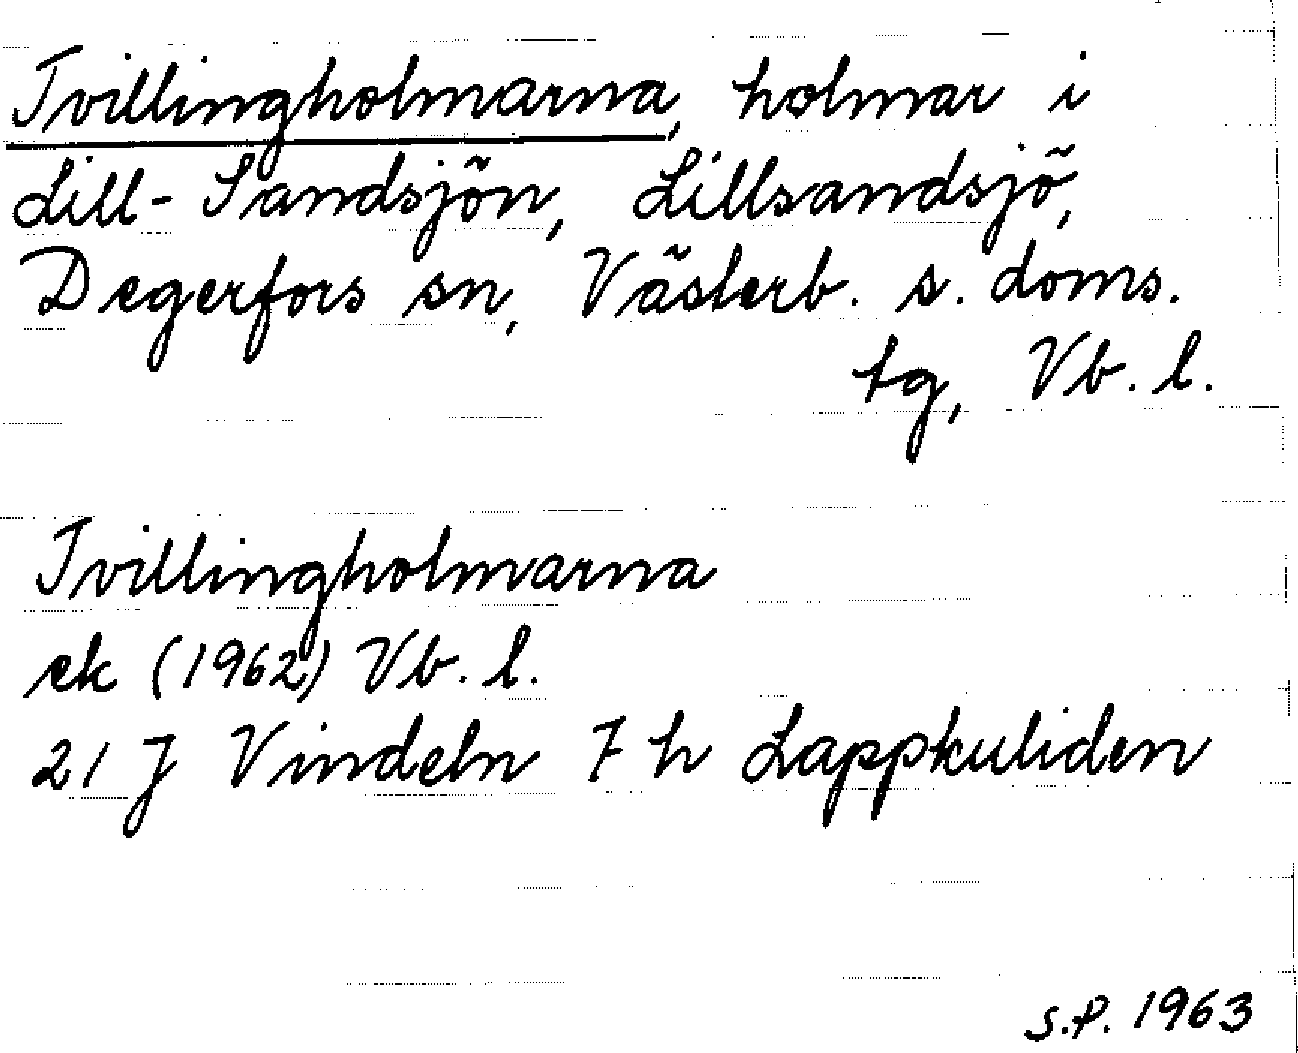 Tvillingholmarna, holmar i
Lill-Sandsjön, Lillsandsjö,
Degerfors sn, Västerb. s. doms.
tg, Vb. l.
Tvillingholmarna
ek (1962) Vb. l.
21 J Vindeln 7 h Lappkuliden
S.P. 1963